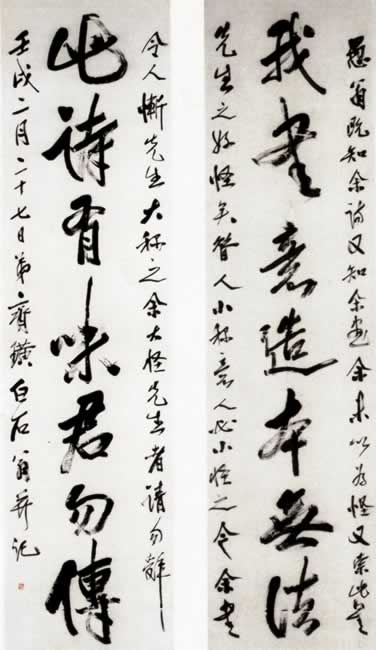 翁既知余詩又知余畫余未以為怪又索此是
我書意造本無法
先生之好怪矣昔人小称意人必小怪之今余書
令人慚先生大称之余大怪先生者請勿辭
此詩有味君勿傳
壬戌二月二十七日弟齊璜白石翁并記